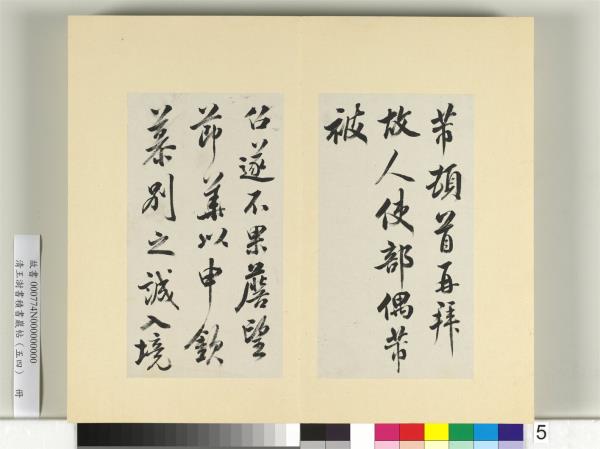 芾頓首再拜
故人使部偶芾
被
召遂不果瞻望
節華以申欽
慕別之誠入境
故書 000774N000000000
清王澍書積書巖帖（五四） 冊
5